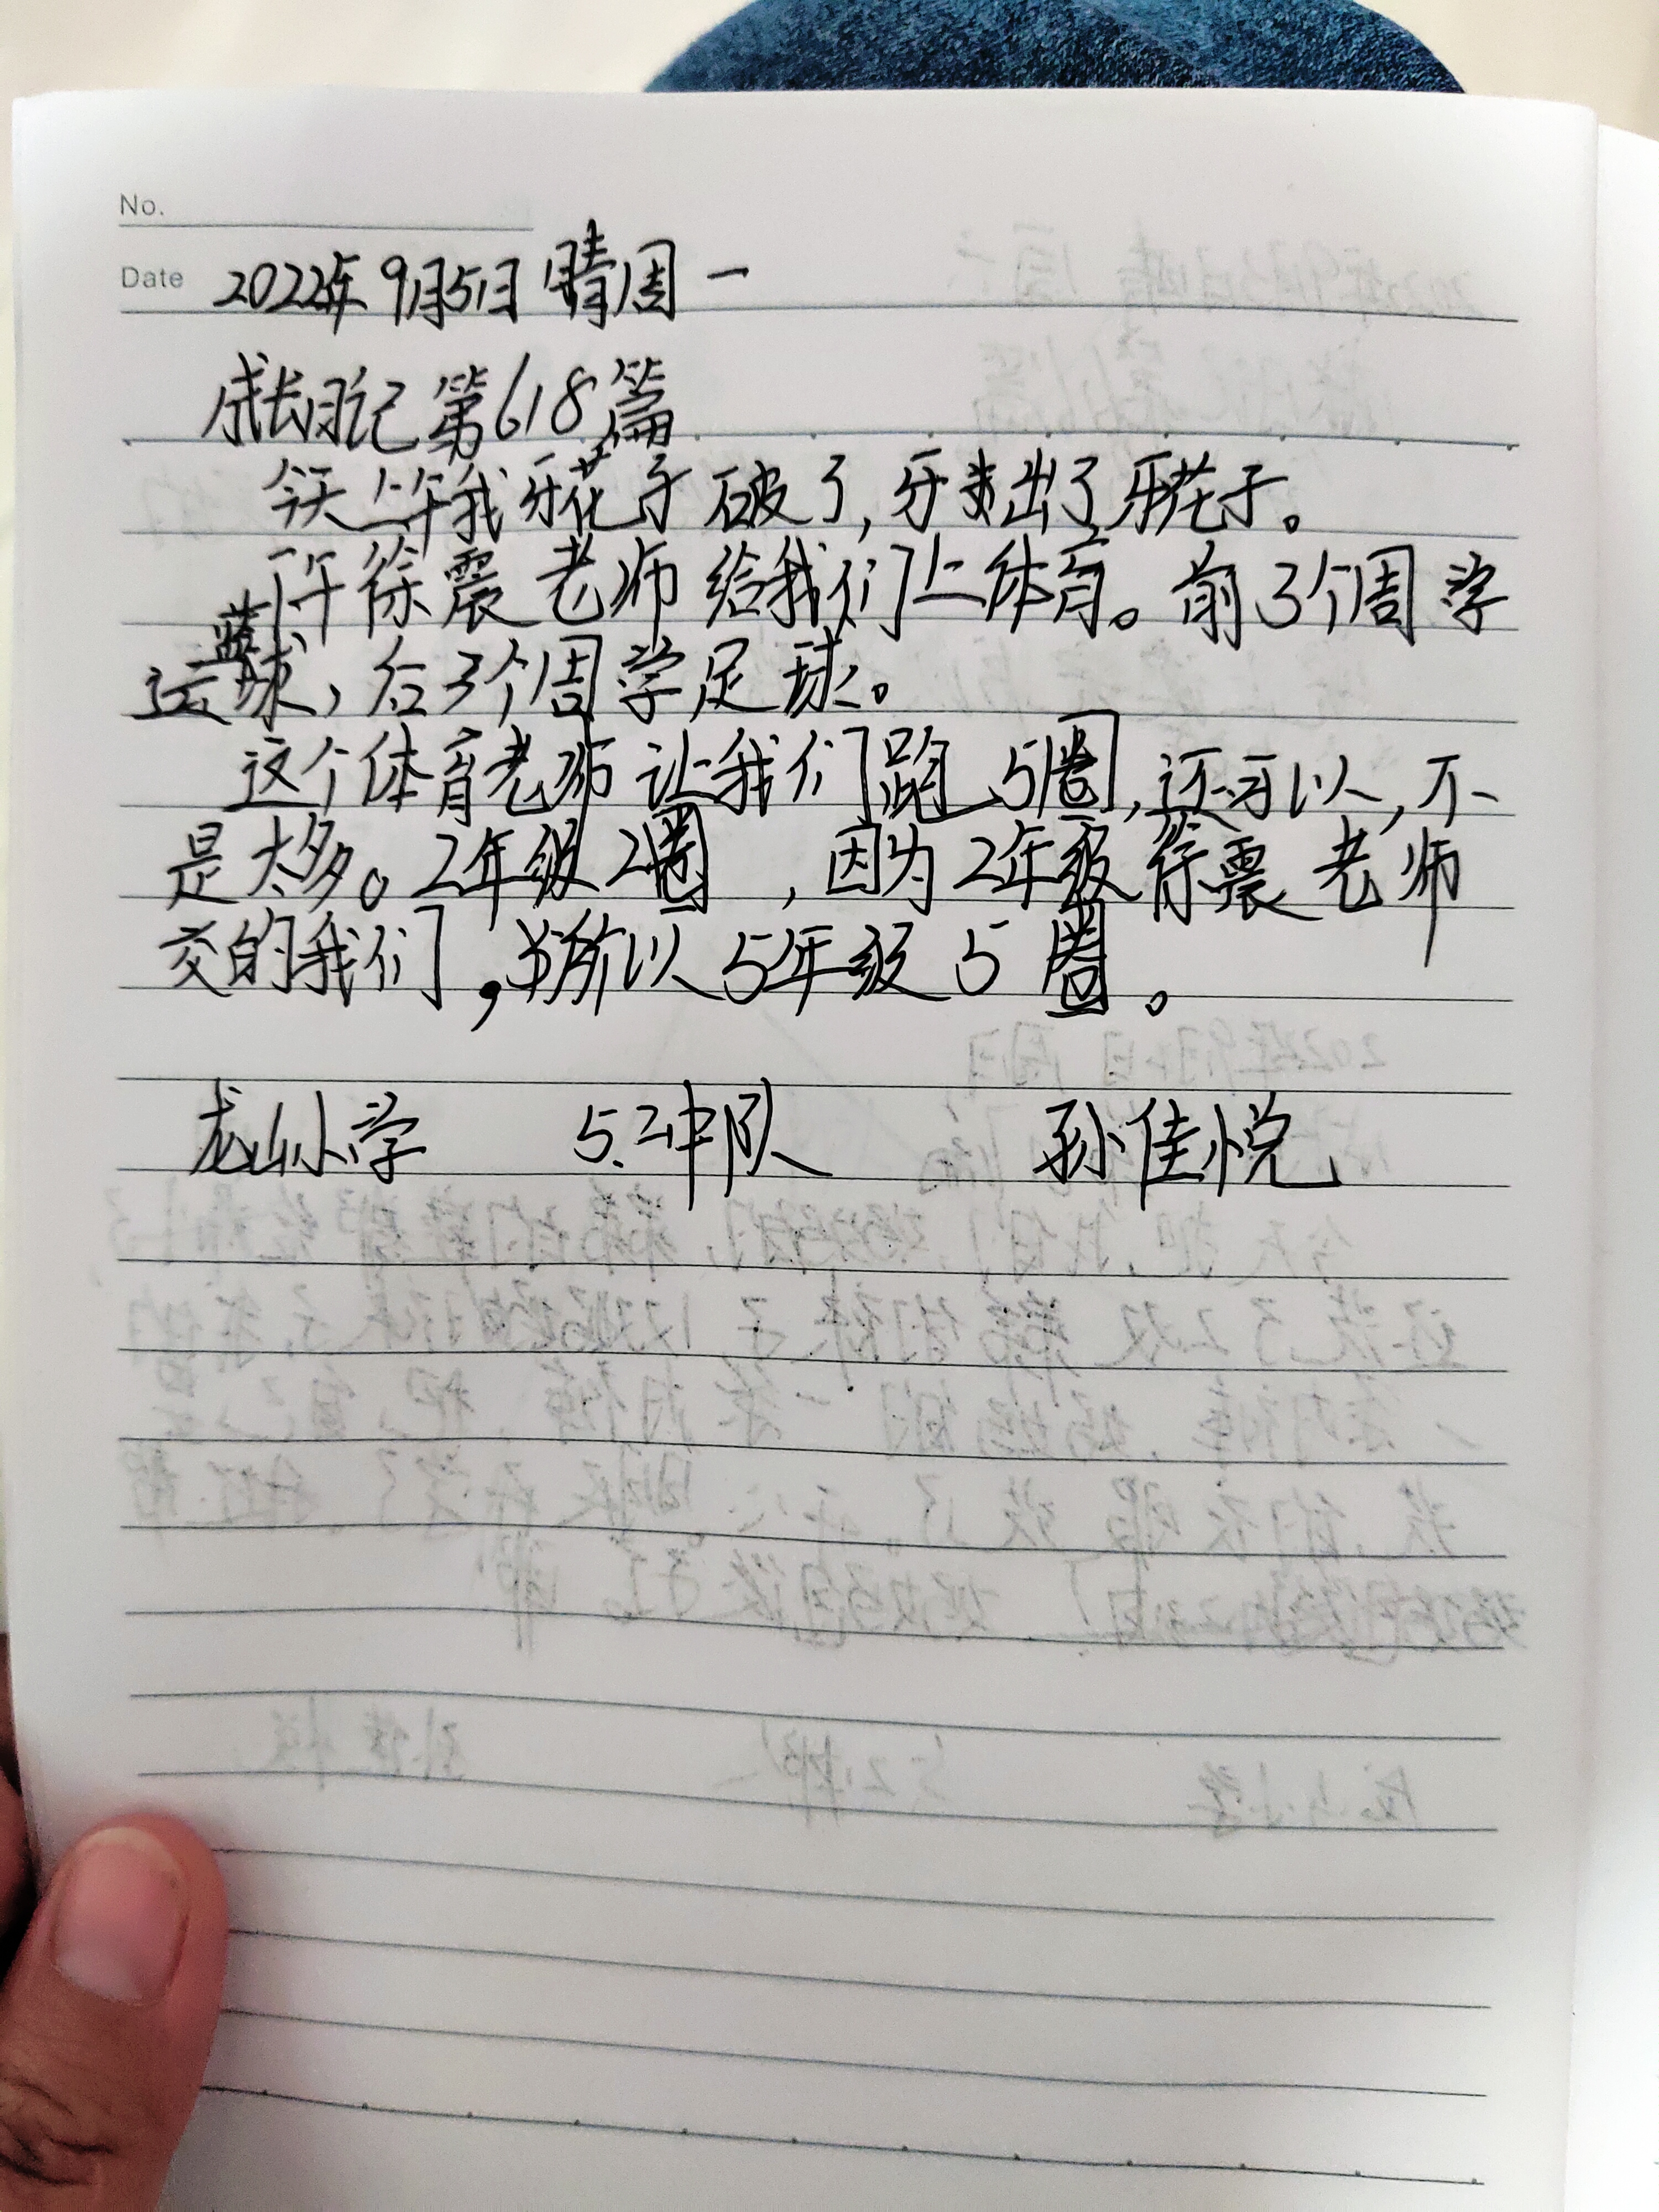 No.
Date 2022年9月5日 晴 周一
成长日记 第618篇
今天上午我牙花子破了,牙出了牙花子。
下午徐震老师给我们上体育。前3个周学
运蓝球,后3个周学足球。
这个体育老师让我们跑5圈,还可以,不
是太多。2年级2圈,因为2年级徐震老师
交的我们,所以5年级5圈。
龙山小学 5.2中队 孙佳悦